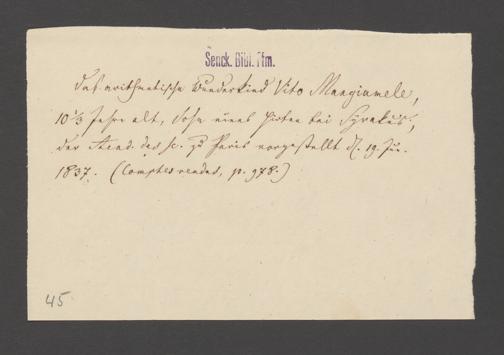 Senck. Bibl. Ffm.
Das arithmetische Wunderkind Vito Mangiamele,
10 1/3 Jahre alt, Sohn eines Hirten bei Syrakus,
der Acad. des sc. zu Paris vorgestellt d. 19. Jun.
1837. (Comptes rendus, p. 978.)
45